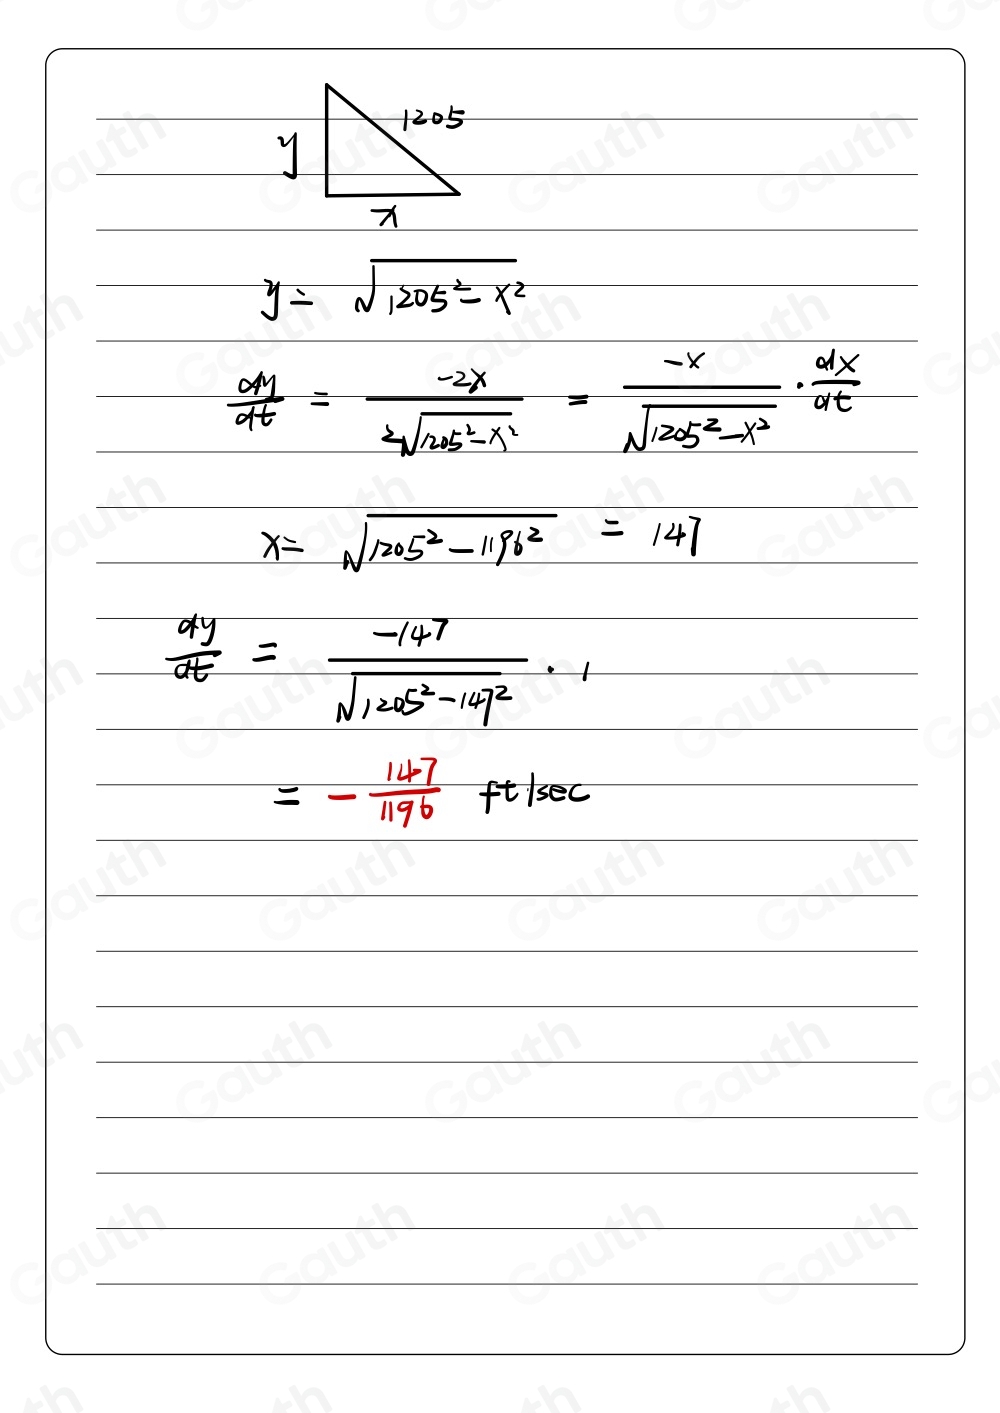 1205
y
x
y = √(1205² - x²)
dy/dt = -2x / 2√(1205² - x²) = -x / √(1205² - x²) · dx/dt
x = √(1205² - 1196²) = 147
dy/dt = -147 / √(1205² - 147²) · 1
= - 147/1196 ft/sec
Gauth